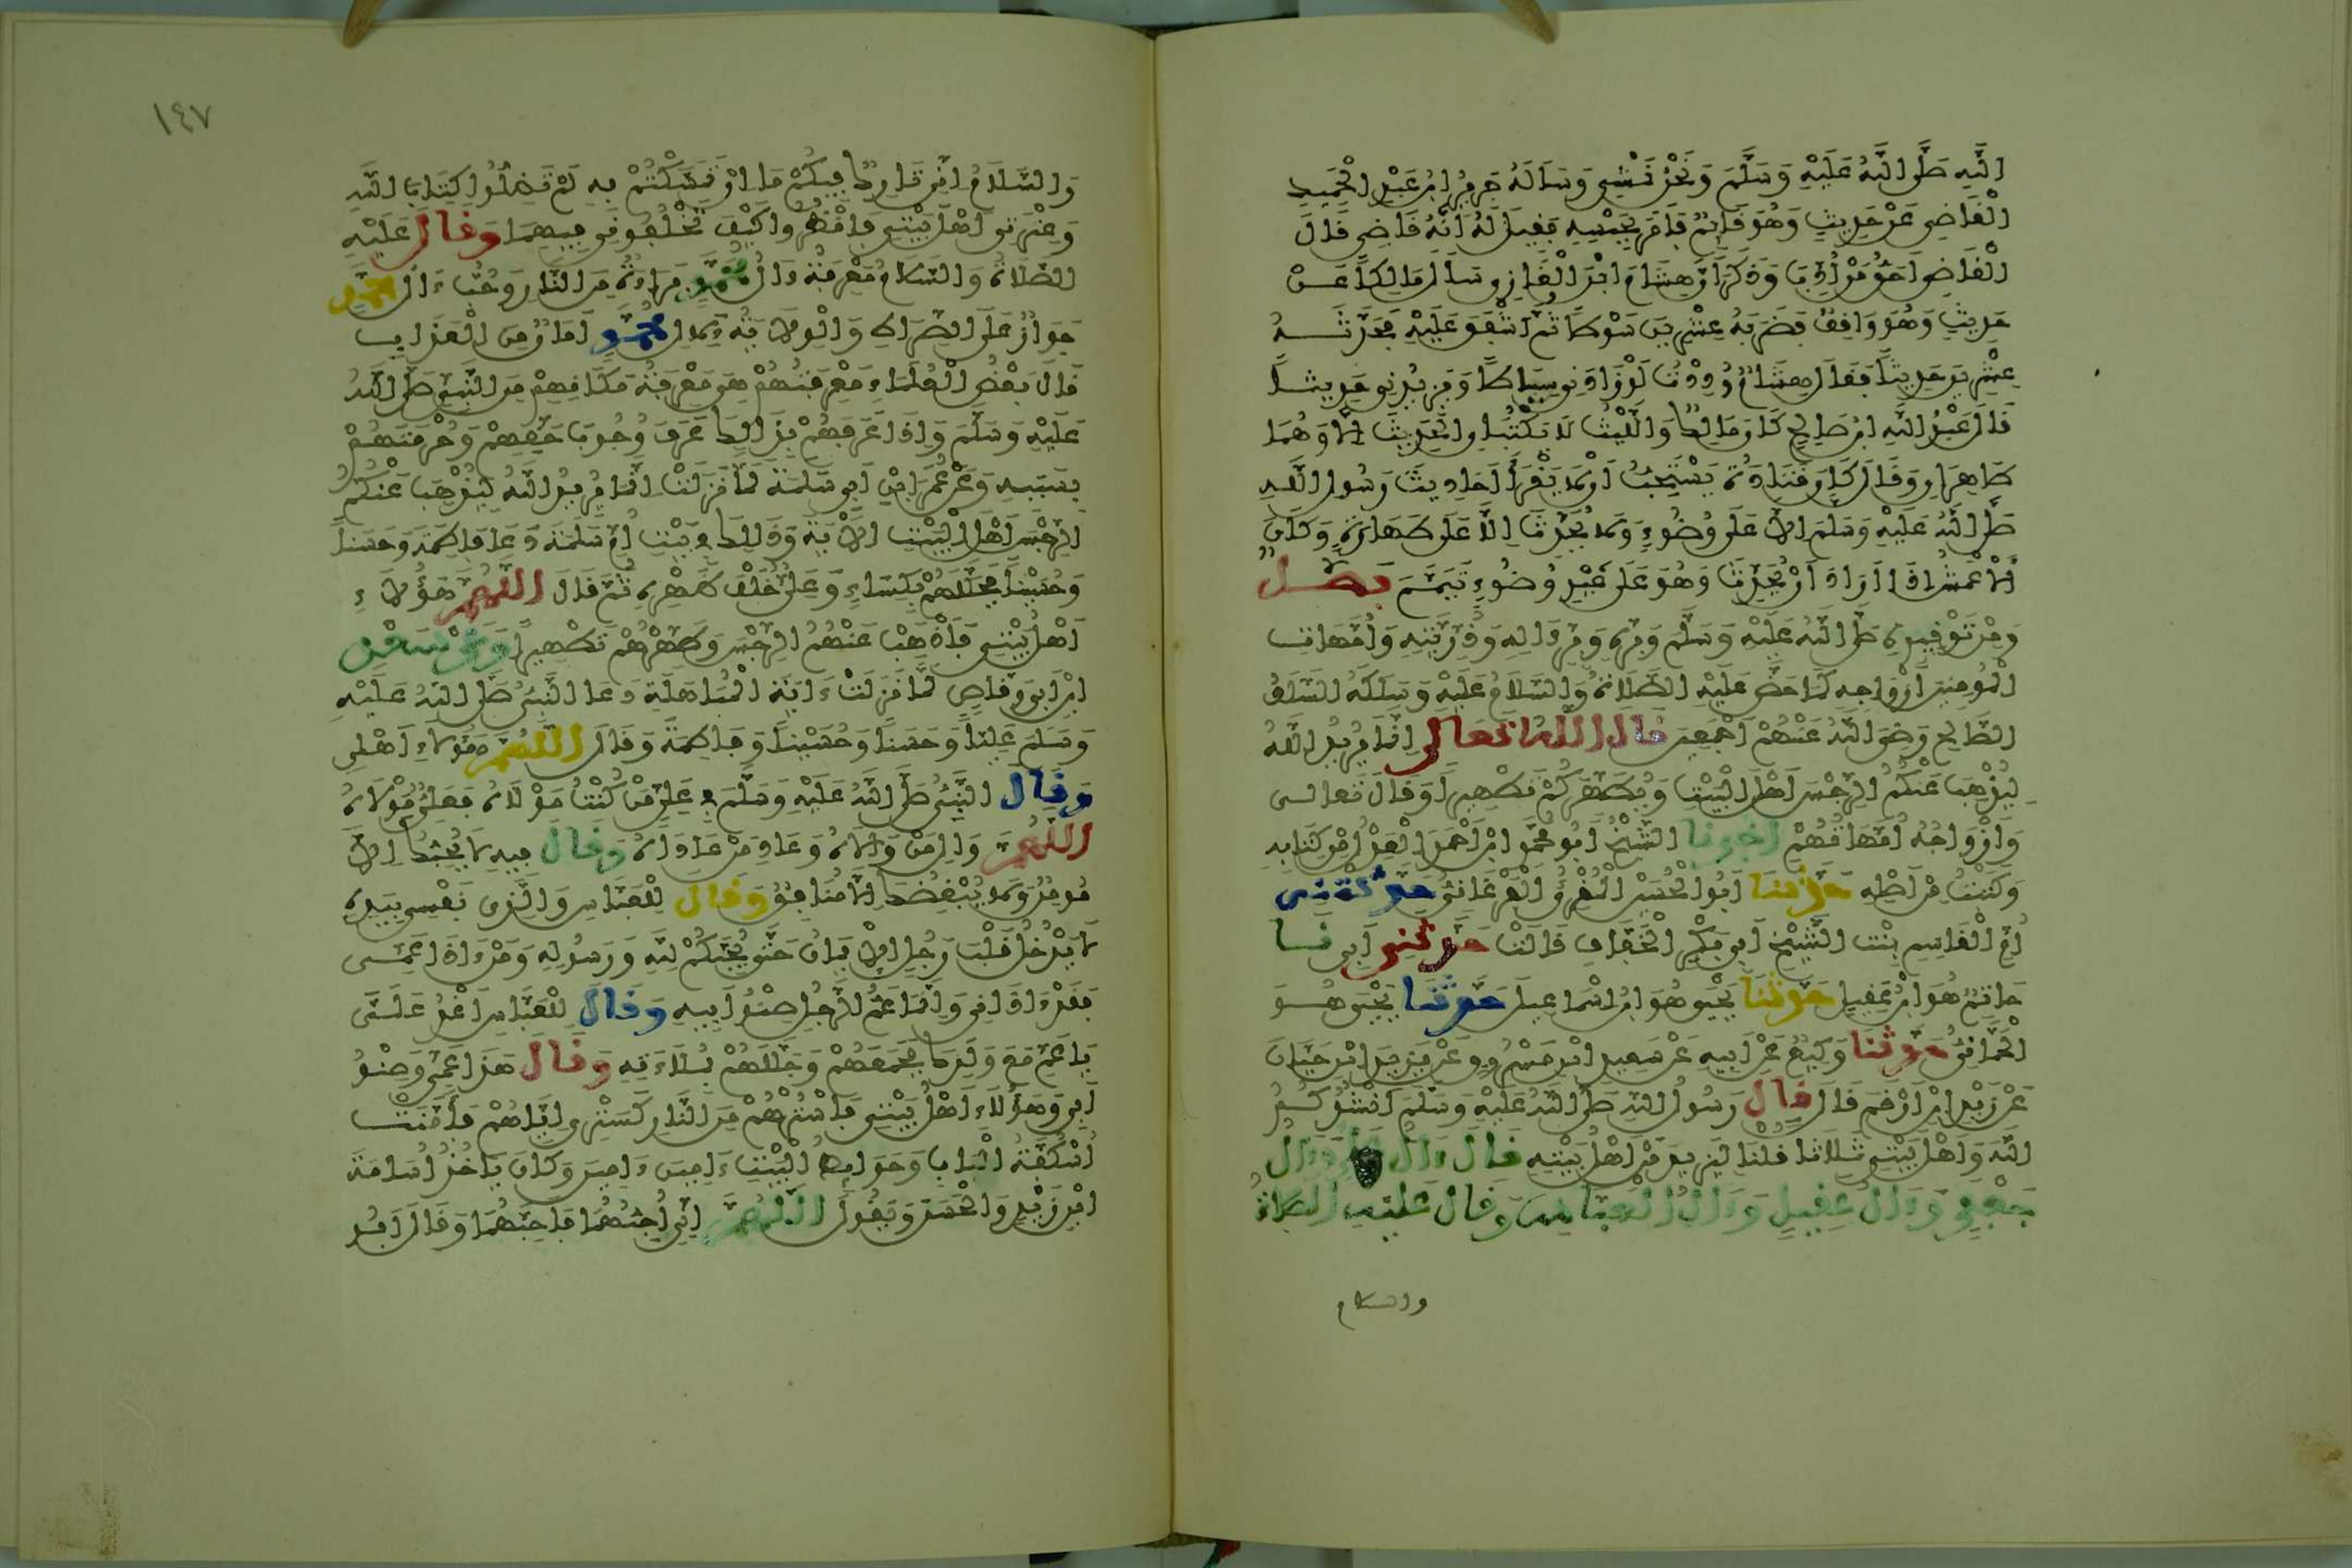 اللَّهِ صَلَّى اللَّهُ عَلَيْهِ وَسَلَّمَ وَنَحْنُ نَمْشِي وَسَأَلَهُ جَرِيرُ ابْنُ عَبْدِ الْحَمِيدِ
الْقَاضِي عَنْ حَدِيثٍ وَهُوَ قَائِمٌ فَأَمَرَ بِحَبْسِهِ فَقِيلَ لَهُ إِنَّهُ قَاضٍ قَالَ
الْقَاضِي أَحَقُّ مَنْ أُدِّبَ وَذُكِرَ أَنَّ هِشَامَ ابْنَ الْغَازِي سَأَلَ مَالِكاً عَنْ
حَدِيثٍ وَهُوَ وَاقِفٌ فَضَرَبَهُ عِشْرِينَ سَوْطاً ثُمَّ أَشْفَقَ عَلَيْهِ فَحَدَّثَهُ
عِشْرِينَ حَدِيثاً فَقَالَ هِشَامٌ وَدِدْتُ لَوْ زَادَنِي سِيَاطاً وَيَزِيدُنِي حَدِيثاً
قَالَ عَبْدُ اللَّهِ ابْنُ صَالِحٍ كَانَ مَالِكٌ وَاللَّيْثُ لَا يَكْتُبَانِ الْحَدِيثَ إِلَّا وَهُمَا
طَاهِرَانِ وَقَالَ كَانَ قَتَادَةُ يَسْتَحِبُّ أَنْ لَا يَقْرَأَ أَحَادِيثَ رَسُولِ اللَّهِ
صَلَّى اللَّهُ عَلَيْهِ وَسَلَّمَ إِلَّا عَلَى وُضُوءٍ وَلَا يُحَدِّثَ إِلَّا عَلَى طَهَارَةٍ وَكَانَ
الْأَعْمَشُ إِذَا أَرَادَ أَنْ يُحَدِّثَ وَهُوَ عَلَى غَيْرِ وُضُوءٍ تَيَمَّمَ فَصْلٌ
وَمِنْ تَوْقِيرِهِ صَلَّى اللَّهُ عَلَيْهِ وَسَلَّمَ وَبِرِّهِ وَبِرِّ ءَالِهِ وَذُرِّيَّتِهِ وَأُمَّهَاتِ
الْمُومِنِينَ أَزْوَاجِهِ كَمَا حَضَّ عَلَيْهِ الصَّلَاةُ وَالسَّلَامُ عَلَيْهِ وَسَلَكَهُ السَّلَفُ
الصَّالِحُ رَضِيَ اللَّهُ عَنْهُمْ أَجْمَعِينَ قَالَ اللَّهُ تَعَالَى إِنَّمَا يُرِيدُ اللَّهُ
لِيُذْهِبَ عَنْكُمُ الرِّجْسَ أَهْلَ الْبَيْتِ وَيُطَهِّرَكُمْ تَطْهِيراً وَقَالَ تَعَالَى
وَأَزْوَاجُهُ أُمَّهَاتُهُمْ أَخْبَرَنَا الشَّيْخُ أَبُو مُحَمَّدٍ ابْنُ أَحْمَدَ الْعَدْلُ مِنْ كِتَابِهِ
وَكَتَبْتُ مِنْ أَصْلِهِ حَدَّثَنَا أَبُو الْحَسَنِ الْمُقْرِئُ الْفَرْغَانِيُّ حَدَّثَتْنِي
أُمُّ الْقَاسِمِ بِنْتُ الشَّيْخِ أَبِي بَكْرٍ الْخَفَّافِ قَالَتْ حَدَّثَنِي أَبِي نَا
حَاتِمٌ هُوَ ابْنُ عَقِيلٍ حَدَّثَنَا يَحْيَى هُوَ ابْنُ إِسْمَاعِيلَ حَدَّثَنَا يَحْيَى هُوَ
الْحِمَّانِيُّ حَدَّثَنَا وَكِيعٌ عَنْ أَبِيهِ عَنْ سَعِيدِ ابْنِ مَسْرُوقٍ عَنْ يَزِيدَ ابْنِ حَيَّانَ
عَنْ زَيْدِ ابْنِ أَرْقَمَ قَالَ قَالَ رَسُولُ اللَّهِ صَلَّى اللَّهُ عَلَيْهِ وَسَلَّمَ أَنْشُدُكُمُ
اللَّهَ وَأَهْلَ بَيْتِي ثَلَاثاً قُلْنَا لِزَيْدٍ مَنْ أَهْلُ بَيْتِهِ قَالَ ءَالُ عَلِيٍّ وَءَالُ
جَعْفَرٍ وَءَالُ عَقِيلٍ وَءَالُ الْعَبَّاسِ وَقَالَ عَلَيْهِ الصَّلَاةُ
والسلام
١٤٧
وَالسَّلَامُ إِنِّي تَارِكٌ فِيكُمْ مَا إِنْ تَمَسَّكْتُمْ بِهِ لَمْ تَضِلُّوا كِتَابَ اللَّهِ
وَعِتْرَتِي أَهْلَ بَيْتِي فَانْظُرُوا كَيْفَ تَخْلُفُونِي فِيهِمَا وَقَالَ عَلَيْهِ
الصَّلَاةُ وَالسَّلَامُ مَعْرِفَةُ ءَالِ مُحَمَّدٍ بَرَاءَةٌ مِنَ النَّارِ وَحُبُّ ءَالِ مُحَمَّدٍ
جَوَازٌ عَلَى الصِّرَاطِ وَالْوِلَايَةُ لِآلِ مُحَمَّدٍ أَمَانٌ مِنَ الْعَذَابِ
قَالَ بَعْضُ الْعُلَمَاءِ مَعْرِفَتُهُمْ هِيَ مَعْرِفَةُ مَكَانِهِمْ مِنَ النَّبِيِّ صَلَّى اللَّهُ
عَلَيْهِ وَسَلَّمَ وَإِذَا عَرَفَهُمْ بِذَالِكَ عَرَفَ وُجُوبَ حَقِّهِمْ وَحُرْمَتِهِمْ
بِسَبَبِهِ وَعَنْ عُمَرَ ابْنِ أَبِي سَلَمَةَ لَمَّا نَزَلَتْ إِنَّمَا يُرِيدُ اللَّهُ لِيُذْهِبَ عَنْكُمُ
الرِّجْسَ أَهْلَ الْبَيْتِ الْآيَةَ وَذَلِكَ فِي بَيْتِ أُمِّ سَلَمَةَ دَعَا فَاطِمَةَ وَحَسَناً
وَحُسَيْناً فَجَلَّلَهُمْ بِكِسَاءٍ وَعَلِيٌّ خَلْفَ ظَهْرِهِ ثُمَّ قَالَ اللَّهُمَّ هَؤُلَاءِ
أَهْلُ بَيْتِي فَأَذْهِبْ عَنْهُمُ الرِّجْسَ وَطَهِّرْهُمْ تَطْهِيراً وَعَنْ سَعْدِ
ابْنِ أَبِي وَقَّاصٍ لَمَّا نَزَلَتْ ءَايَةُ الْمُبَاهَلَةِ دَعَا النَّبِيُّ صَلَّى اللَّهُ عَلَيْهِ
وَسَلَّمَ عَلِيّاً وَحَسَناً وَحُسَيْناً وَفَاطِمَةَ وَقَالَ اللَّهُمَّ هَؤُلَاءِ أَهْلِي
وَقَالَ النَّبِيُّ صَلَّى اللَّهُ عَلَيْهِ وَسَلَّمَ فِي عَلِيٍّ مَنْ كُنْتُ مَوْلَاهُ فَعَلِيٌّ مَوْلَاهُ
اللَّهُمَّ وَالِ مَنْ وَالَاهُ وَعَادِ مَنْ عَادَاهُ وَقَالَ فِيهِ لَا يُحِبُّكَ إِلَّا
مُومِنٌ وَلَا يُبْغِضُكَ إِلَّا مُنَافِقٌ وَقَالَ لِلْعَبَّاسِ وَالَّذِي نَفْسِي بِيَدِهِ
لَا يَدْخُلُ قَلْبَ رَجُلٍ الْإِيمَانُ حَتَّى يُحِبَّكُمْ لِلَّهِ وَرَسُولِهِ وَمَنْ ءَاذَى عَمِّي
فَقَدْ ءَاذَانِي وَإِنَّمَا عَمُّ الرَّجُلِ صِنْوُ أَبِيهِ وَقَالَ لِلْعَبَّاسِ اغْدُ عَلَيَّ
يَا عَمِّ مَعَ وَلَدِكَ فَجَمَعَهُمْ وَجَلَّلَهُمْ بِمُلَاءَتِهِ وَقَالَ هَذَا عَمِّي وَصِنْوُ
أَبِي وَهَؤُلَاءِ أَهْلُ بَيْتِي فَاسْتُرْهُمْ مِنَ النَّارِ كَسَتْرِي إِيَّاهُمْ فَأَمَّنَتْ
أُسْكُفَّةُ الْبَابِ وَحَوَائِطُ الْبَيْتِ ءَامِينَ ءَامِينَ وَكَانَ يَاخُذُ أُسَامَةَ
ابْنَ زَيْدٍ وَالْحَسَنَ وَيَقُولُ اللَّهُمَّ إِنِّي أُحِبُّهُمَا فَأَحِبَّهُمَا وَقَالَ أَبُو